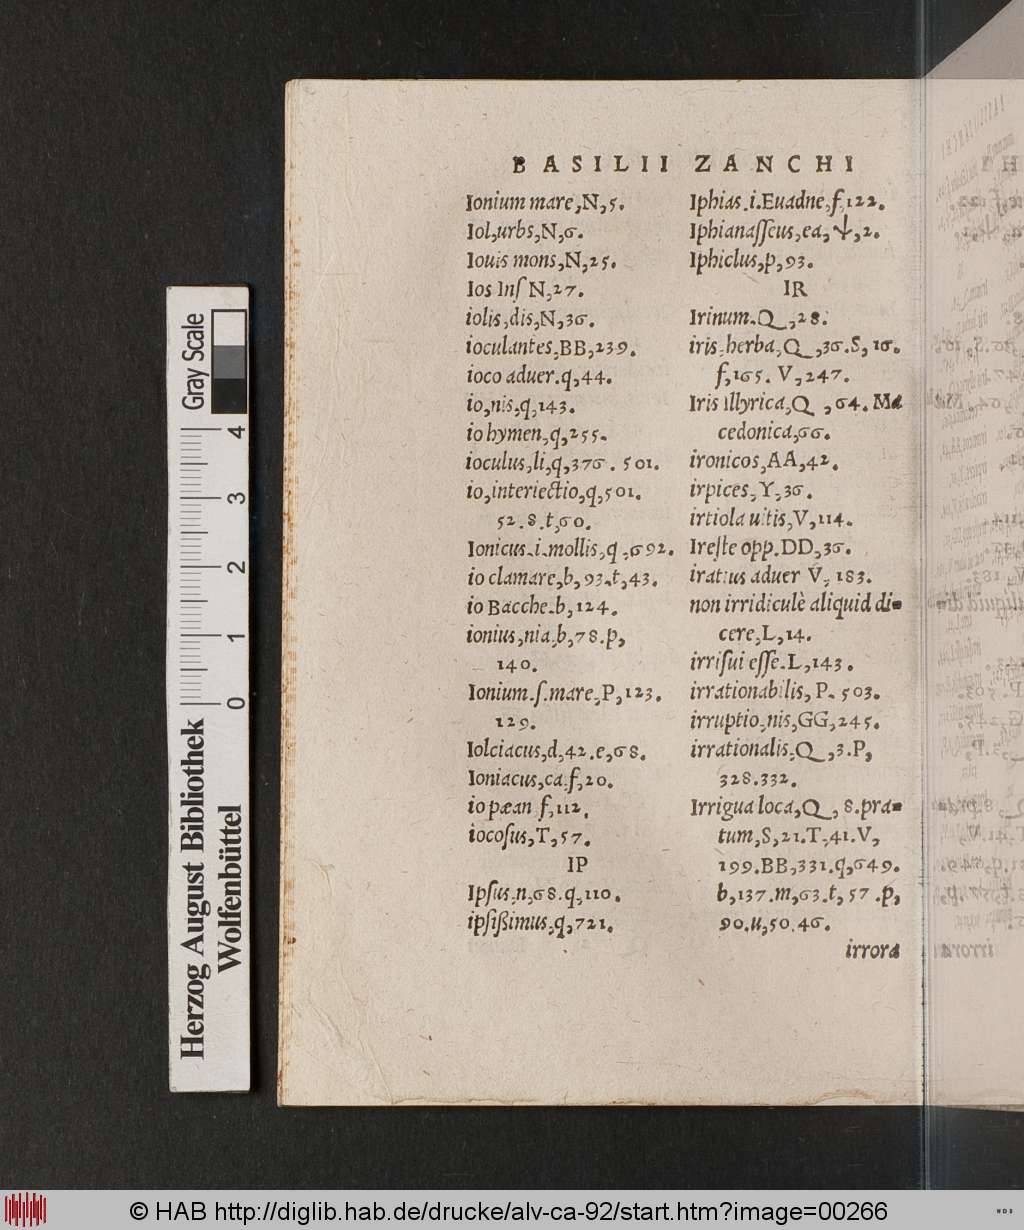 BASILII ZANCHI
Ionium mare,N,5.
Iol,urbs,N,6.
Iouis mons,N,25.
Ios Inſ N,27.
iolis,dis,N,36.
ioculantes,BB,239.
ioco aduer.q,44.
io,nis,q,143.
io hymen,q,255.
ioculus,li,q,376. 501.
io,interiectio,q,501.
52.8.t,60.
Ionicus.i.mollis,q,692.
io clamare,b,93.t,43.
io Bacche.b,124.
ionius,nia,b,78.p,
140.
Ionium.ſ.mare,P,123.
129.
Iolciacus,d,42.e,68.
Ioniacus,ca.f,20.
io pæan f,112.
iocoſus,T,57.
IP
Ipſus,n,68.q,110.
ipſißimus,q,721.
Iphias.i.Euadne,f,122.
Iphianaſſeus,ea,Ψ,2.
Iphiclus,p,93.
IR
Irinum.Q,28.
iris,herba,Q,36.S,16.
f,165. V,247.
Iris illyrica,Q,64. Ma
cedonica,66.
ironicos,AA,42.
irpices,Y,36.
irtiola uitis,V,114.
Ireſte opp.DD,36.
iratius aduer V, 183.
non irridiculè aliquid di-
cere,L,14.
irriſui eſſe.L,143.
irrationabilis, P. 503.
irruptio,nis,GG,245.
irrationalis,Q,3.P,
328.332.
Irrigua loca,Q, 8.pra-
tum,S,21.T,41.V,
199.BB,331.q,649.
b,137.m,63.t,57.p,
90.u,50.46.
irrora
Gray Scale
4 3 2 1 0
Herzog August Bibliothek
Wolfenbüttel
© HAB http://diglib.hab.de/drucke/alv-ca-92/start.htm?image=00266